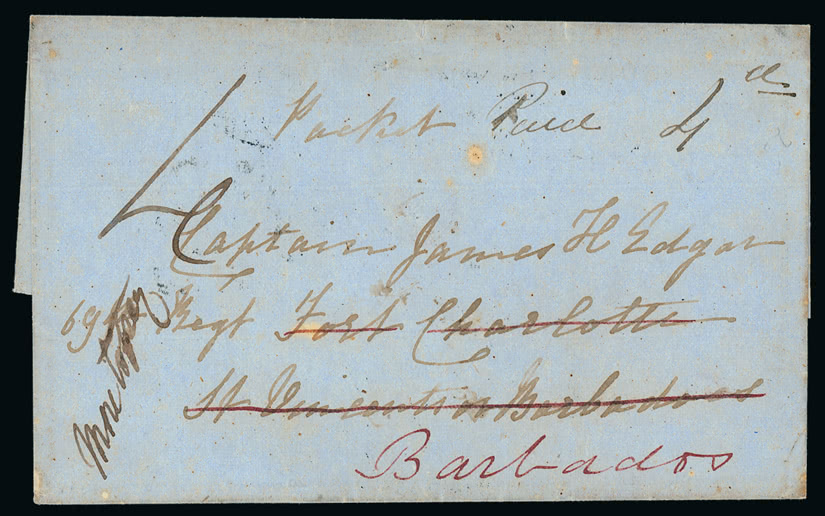 Packet Paid 4d
4
Captain James H Edgar
69th Regt Fort Charlotte
St Vincent or Barbadoes
Barbados
More to pay